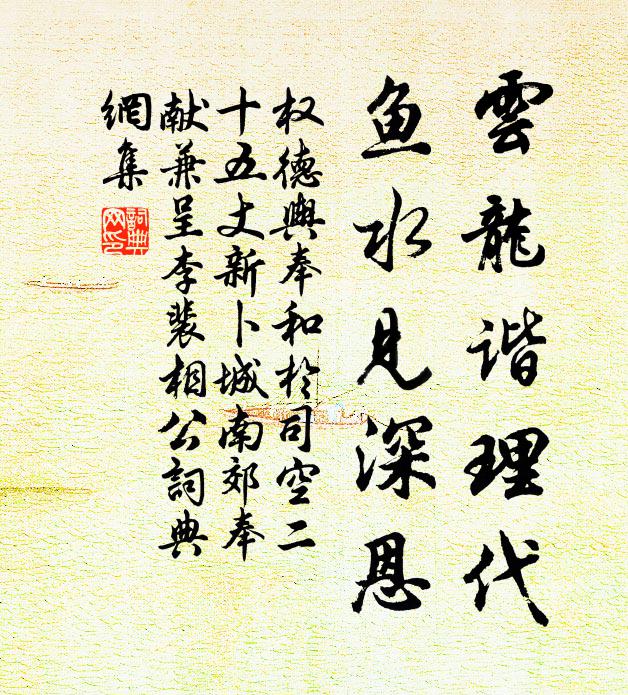 雲龍谐理代
鱼水见深恩
权德輿奉和於司空二
十五丈新卜城南郊奉
献兼呈李裴相公詞典
網集
詞典
网印